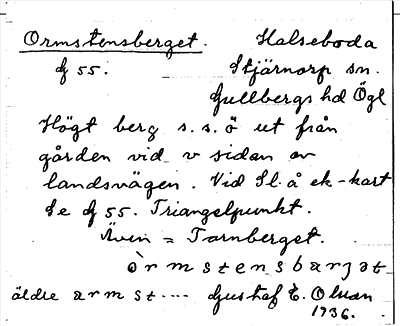 Ormstensberget. Halseboda
g 55. Stjärnorp sn.
Gullbergs hd Ögl
Högt berg s.s.ö ut från
gården vid v sidan av
landsvägen. Vid Sl. å ek-kart
Se g 55. Triangelpunkt.
Även = Tornberget.
òrmstensbarjət
äldre armst... Gustaf E. Olsson
1936.